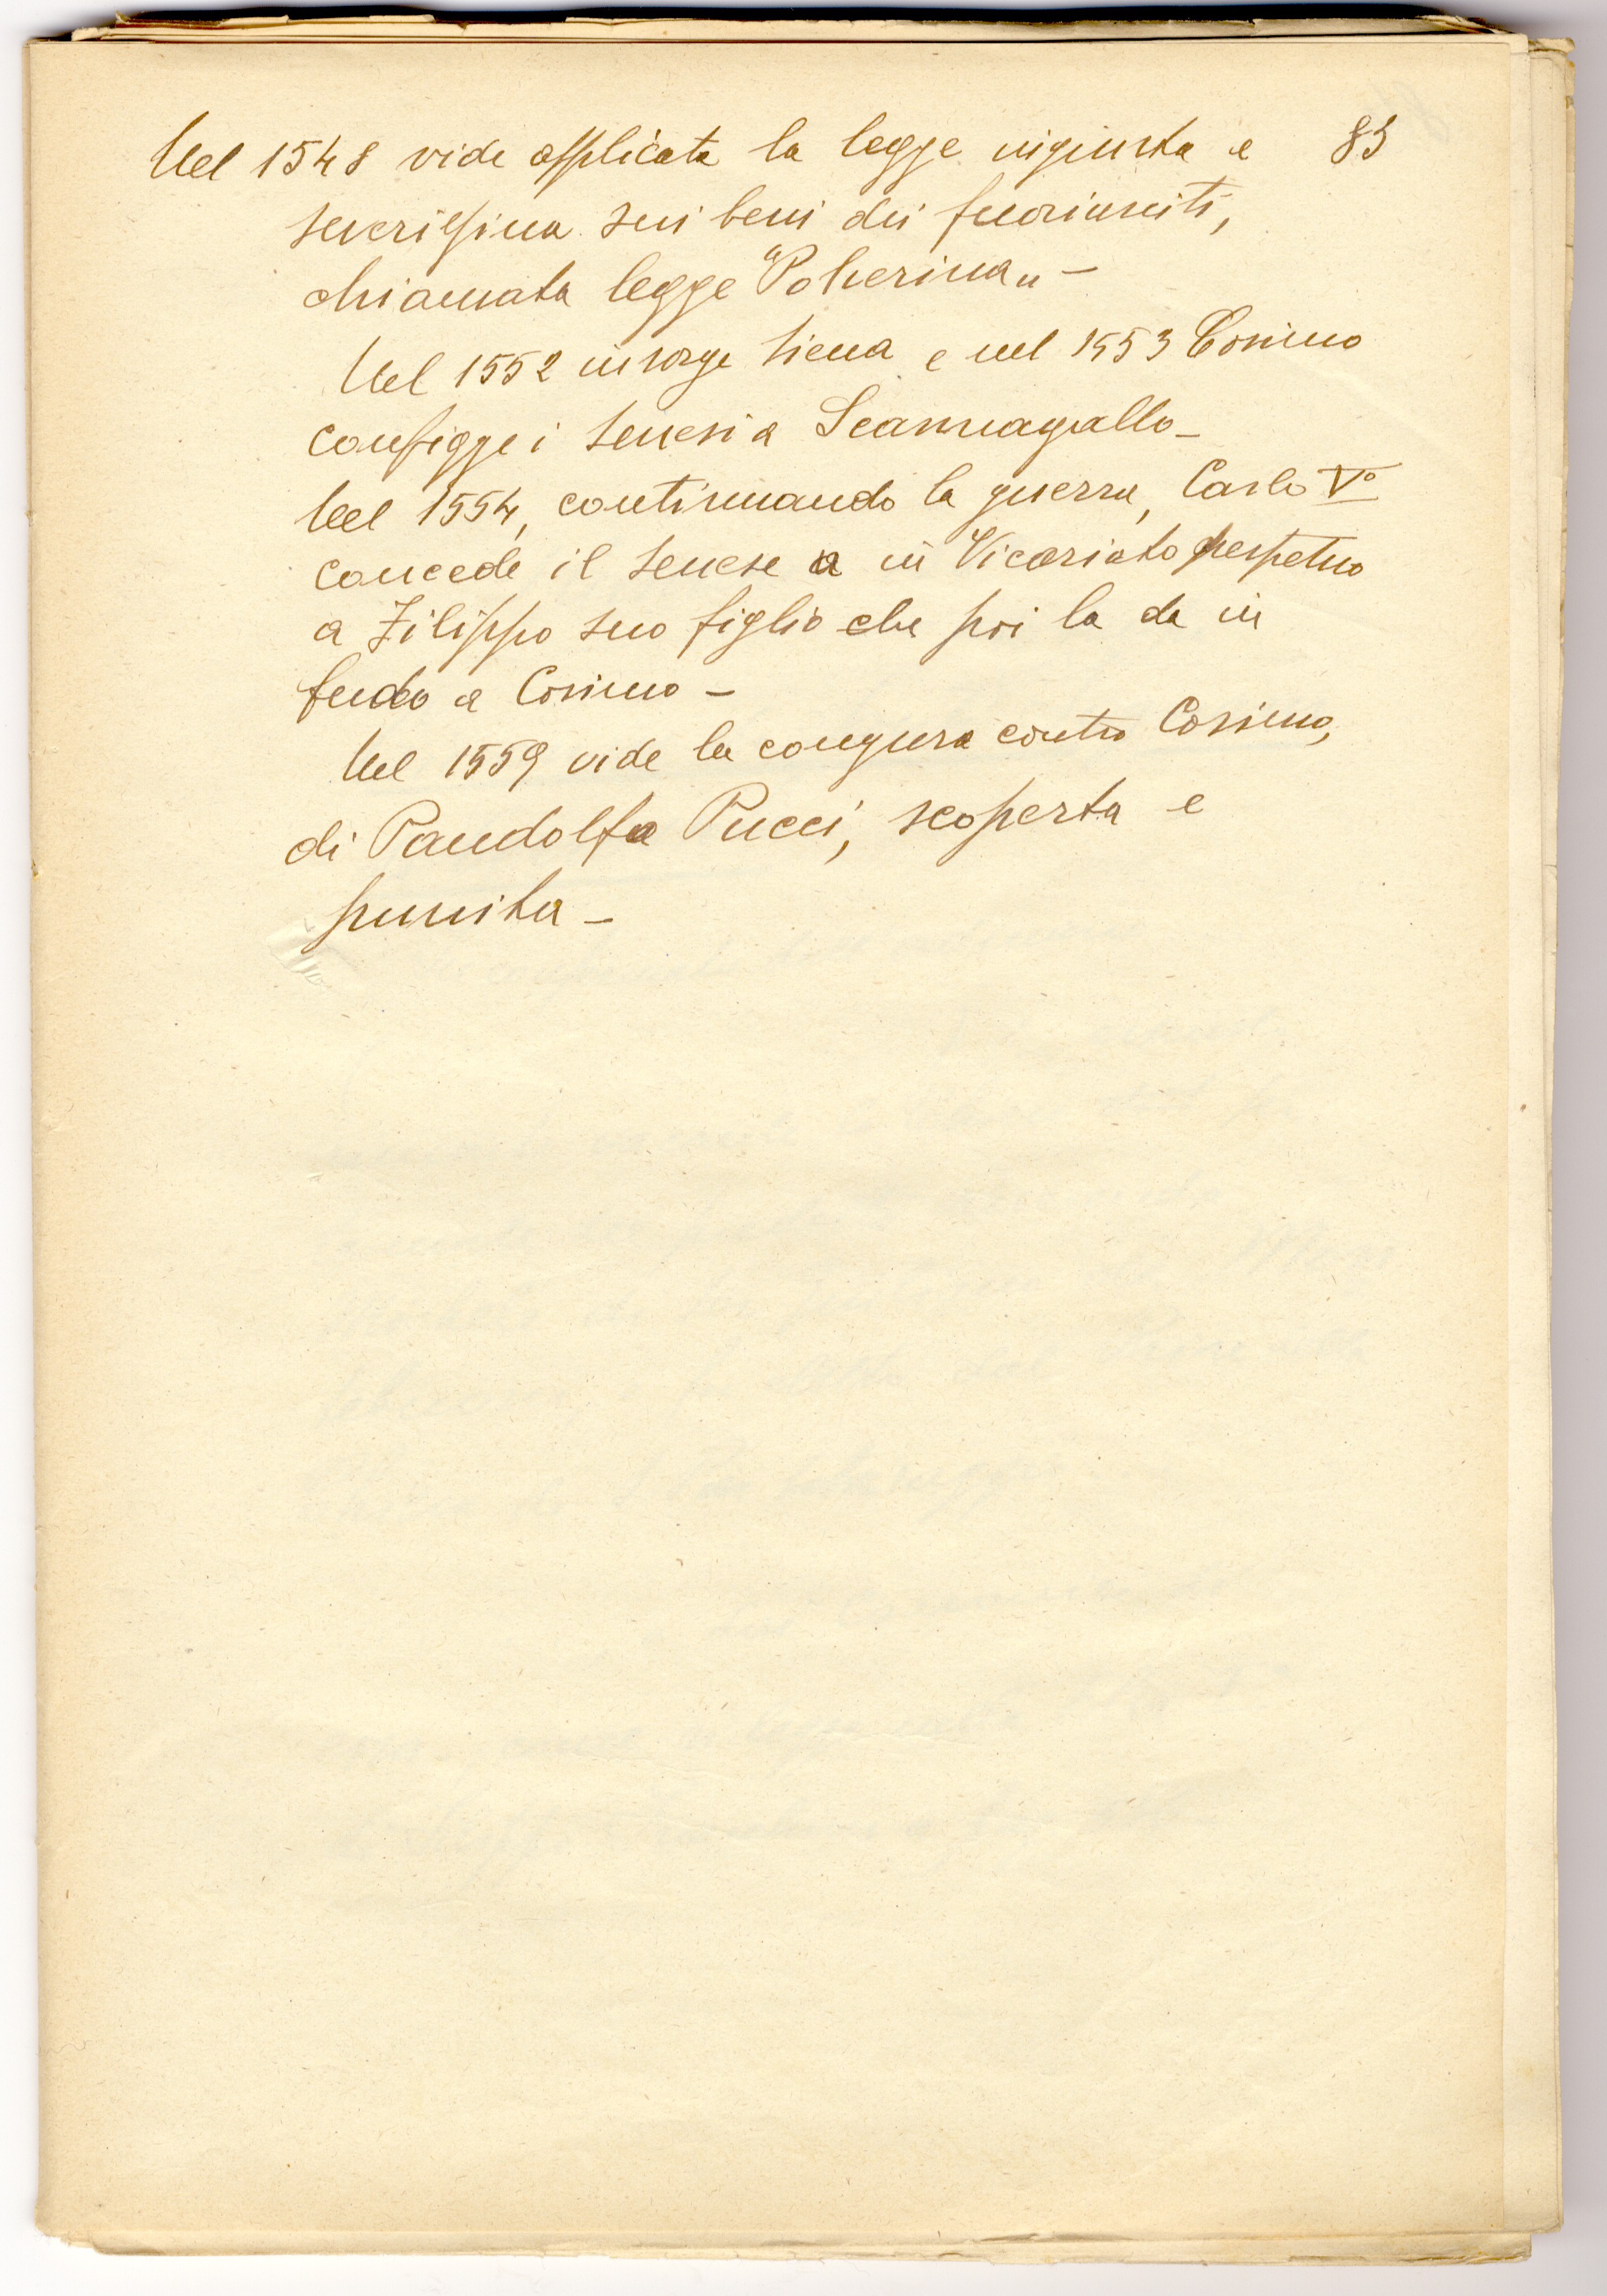 Nel 1548 vide applicata la legge ingiusta e 83
severissima sui beni dei fuoriusciti,
chiamata legge "Polverina" -
Nel 1552 insorge Siena e nel 1553 Cosimo
configge i senesi a Scannagallo -
Nel 1554, continuando la guerra, Carlo V°
concede il senese a in Vicariato perpetuo
a Filippo suo figlio che poi la da in
feudo a Cosimo -
Nel 1559 vide la congiura contro Cosimo,
di Pandolfo Pucci, scoperta e
punita -